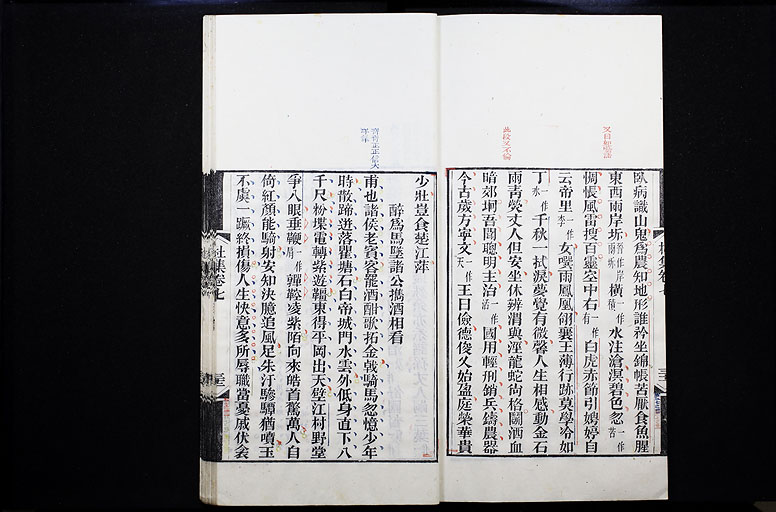 又曰起語活
此段又不倫
臥病識山鬼爲農知地形誰矜坐錦帳苦厭食魚腥
東西兩岸坼橫一作積水注滄溟碧色忽一作苦
惆悵風雷搜百靈空中右一作有白虎赤節引娉婷自
云帝里一作季女噀雨鳳凰翎襄王薄行跡莫學冷如
丁一作水千秋一拭淚夢覺有微馨人生相感動金石
兩青熒丈人但安坐休辨渭與涇龍蛇尚格鬭洒血
暗郊坰吾聞聰明主治一作活國用輕刑銷兵鑄農器
今古歲方寧文一作天王日儉德俊乂始盈庭榮華貴
杜集卷七
少壯豈食楚江萍
醉爲馬墜諸公攜酒相看
甫也諸侯老賓客罷酒酣歌拓金戟騎馬忽憶少年
時散蹄迸落瞿塘石白帝城門水雲外低身直下八
千尺粉堞電轉紫遊韁東得平岡出天壁江村野堂
爭入眼垂鞭一作肩嚲鞚凌紫陌向來皓首驚萬人自
倚紅顏能騎射安知決臆追風足朱汗驂驔猶噴玉
不虞一蹶終損傷人生快意多所辱職當憂戚伏衾
杜集卷七